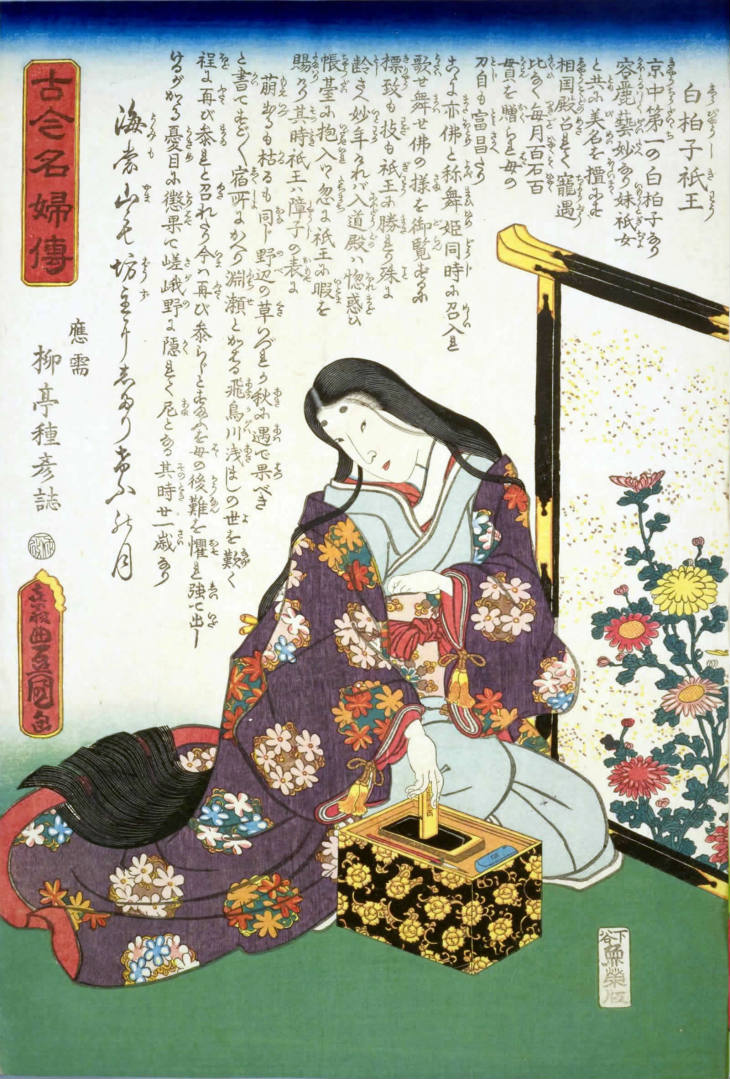 古今名婦傳
白拍子祇王
京中第一の白拍子にて
容麗藝妙あり妹祇女
と共に美名を擅にせしに
相国殿召されて寵遇
比なく毎月百石百
貫を贈られ母の
刀自も富昌たり
こゝに亦佛と称舞姫同時に召入れ
歌せ舞せ佛の様を御覧ずるに
標致も技も祇王に勝り殊に
齢さへ妙年なれバ入道殿ハ惚惑ひ
帳臺に抱入て忽に祇王に暇を
賜ふ其時祇王ハ障子の表に
萌出るも枯るも同じ野辺の草いづれか秋に遇で果べき
と書てもどく宿所にかへり淵瀬とかはる飛鳥川浅ましの世を歎く
程に再び参れと召れたり今ハ再び参らじとするを母の後難を懼れ強て出し
けるがかゝる憂目に懲果て嵯峨野に隠れて尼となる其時廿一歳なり
海棠
應需
柳亭種彦誌
豊国画
下谷
魚榮版